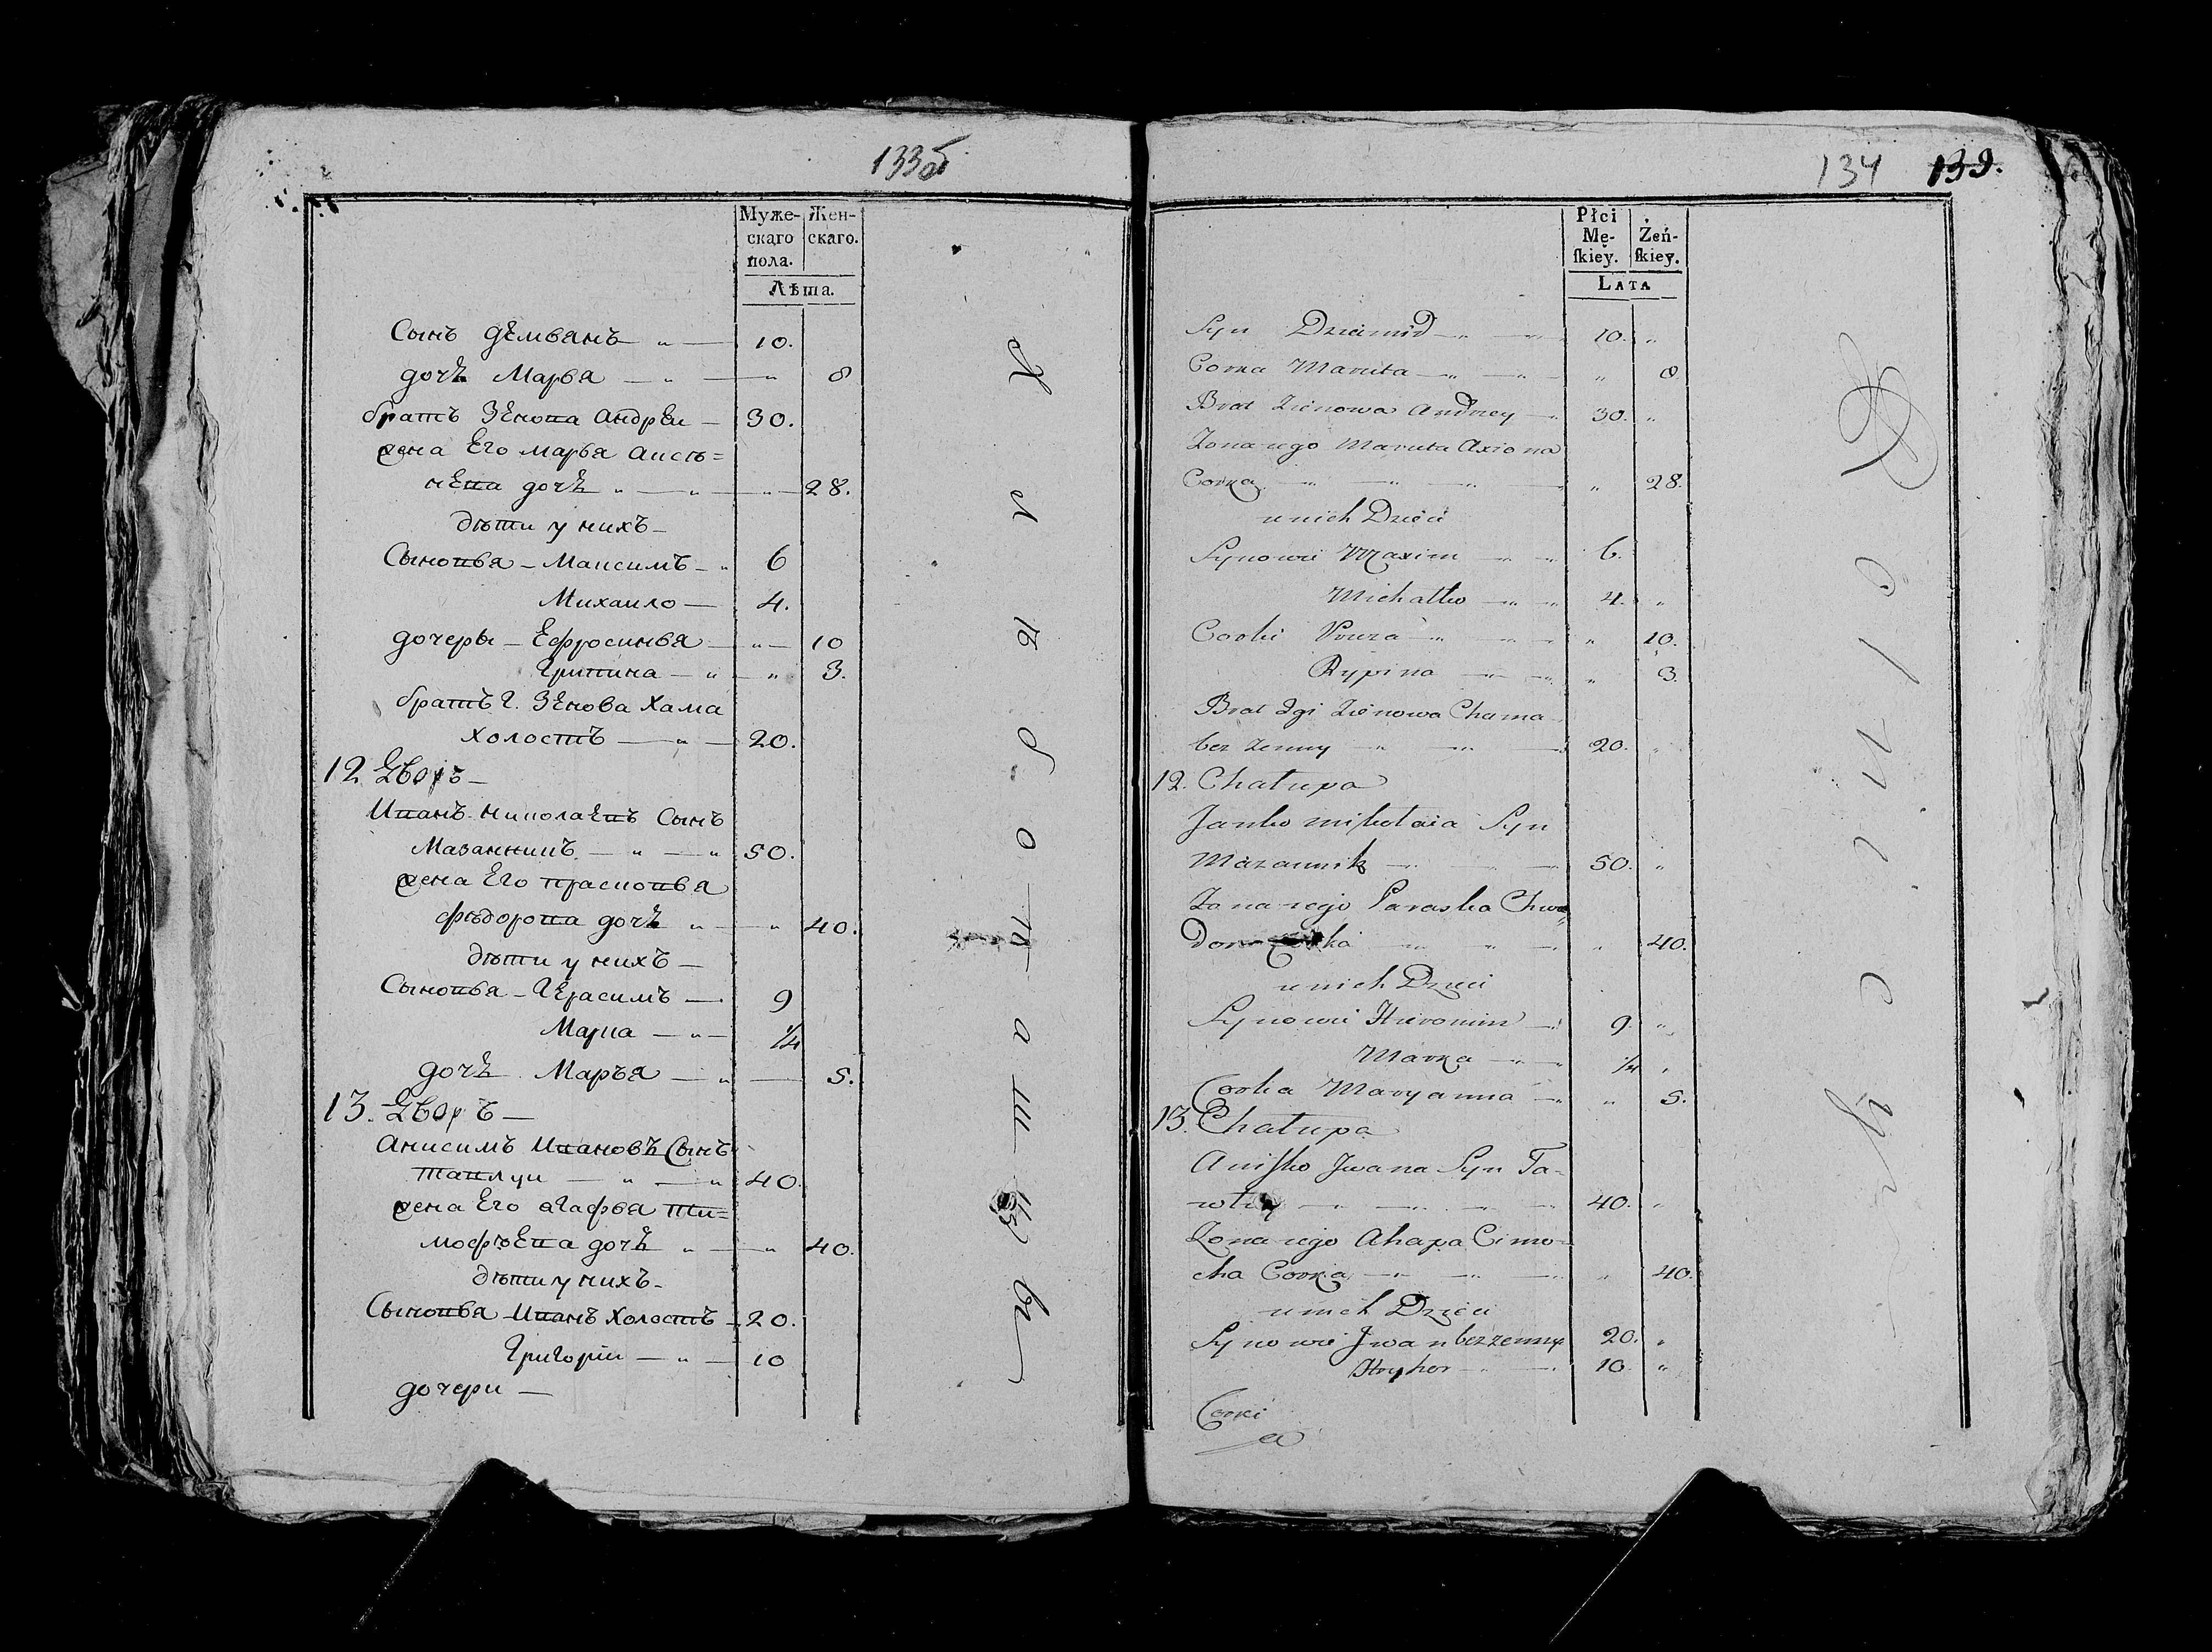 133об
Муже- Жен-
скаго скаго.
пола.
Лѣта.
Сынъ Демьянъ 10.
дочь Марья 8
братъ Зенова Андрей 30.
жена Его Марья Аисть=
нева дочь 28.
дѣти у нихъ
Сыновья Максимъ 6
Михаило 4.
дочеры Ефросинья 10
Грипина 3.
братъ 2. Зенова Хама
холостъ 20.
12 Дворъ
Иванъ Николаевъ Сынъ
Мазанникъ 50.
жена Его Прасковья
Фѣдорова дочь 40.
дѣти у нихъ
Сыновья Герасимъ 9
Марка 1/4
дочь Марья 5.
13. Дворъ
Анисимъ Ивановъ Сынъ
Тавлуи 40.
жена Его Агафья Ти=
мофѣева дочь 40.
дѣти у нихъ
Сыновья Иванъ холостъ 20.
Григоріи 10
дочери
134 139.
Płci
Mę- Żeń-
ſkiey. ſkiey.
LATA
Syn Dziamid 10.
Corka Maruta 8.
Brat Zienowa Andrzey 30.
Zona iego Maruta Axiona
Corka 28.
u nich Dzieci
Synowie Maxim 6.
Michałko 4.
Corki Pruza 10.
Rypina 3.
Brat 2gi Zienowa Chama
bez zenny 20.
12. Chałupa
Janko Mikołaia Syn
Mazannik 50.
Zona iego Paraska Chwe
dora Corka 40.
u nich Dzieci
Synowie Hieronim 9.
Marka 1/4
Corka Maryanna 5.
13. Chałupa
Anisko Jwana Syn Ta-
włuy 40.
Zona iego Ahapa Cimo-
cha Corka 40.
u nich Dzieci
Synowie Jwan bez zenny 20.
Hryhor 10.
Corki